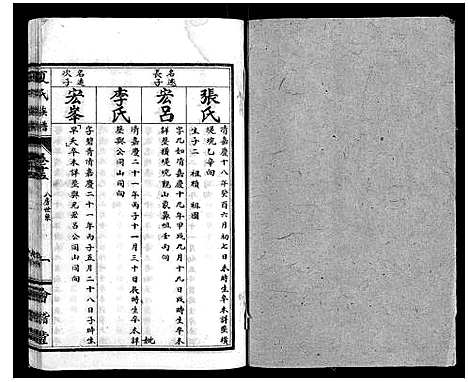 張氏
清嘉慶十八年癸酉六月初七日未時生卒未詳葬橫
堤境乙辛向
生子二 祖積 祖周
名遠長子
宏呂
字九如清嘉慶十九年甲戌九月十九日戌時生卒未
詳葬橫堤境觀山家墓傾壬丙向
李氏
清嘉慶二十一年丙子十一月三十日辰時生卒未詳
葬與公同山同向
名遠次子
宏峯
字碧青清嘉慶二十一年丙子五月二十八日子時生
早夭卒未詳葬與兄宏呂公同山同向
氏族譜
八房世系